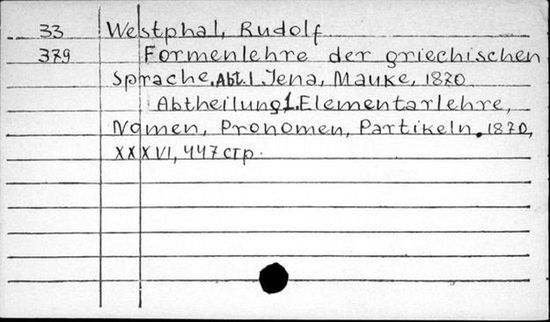 33 Westphal, Rudolf
379 Formenlehre der griechischen
Sprache. Abt. 1 Jena, Mauke, 1870
Abtheilung 1. Elementarlehre,
Nomen, Pronomen, Partikeln. 1870,
XXXVI, 447 стр.